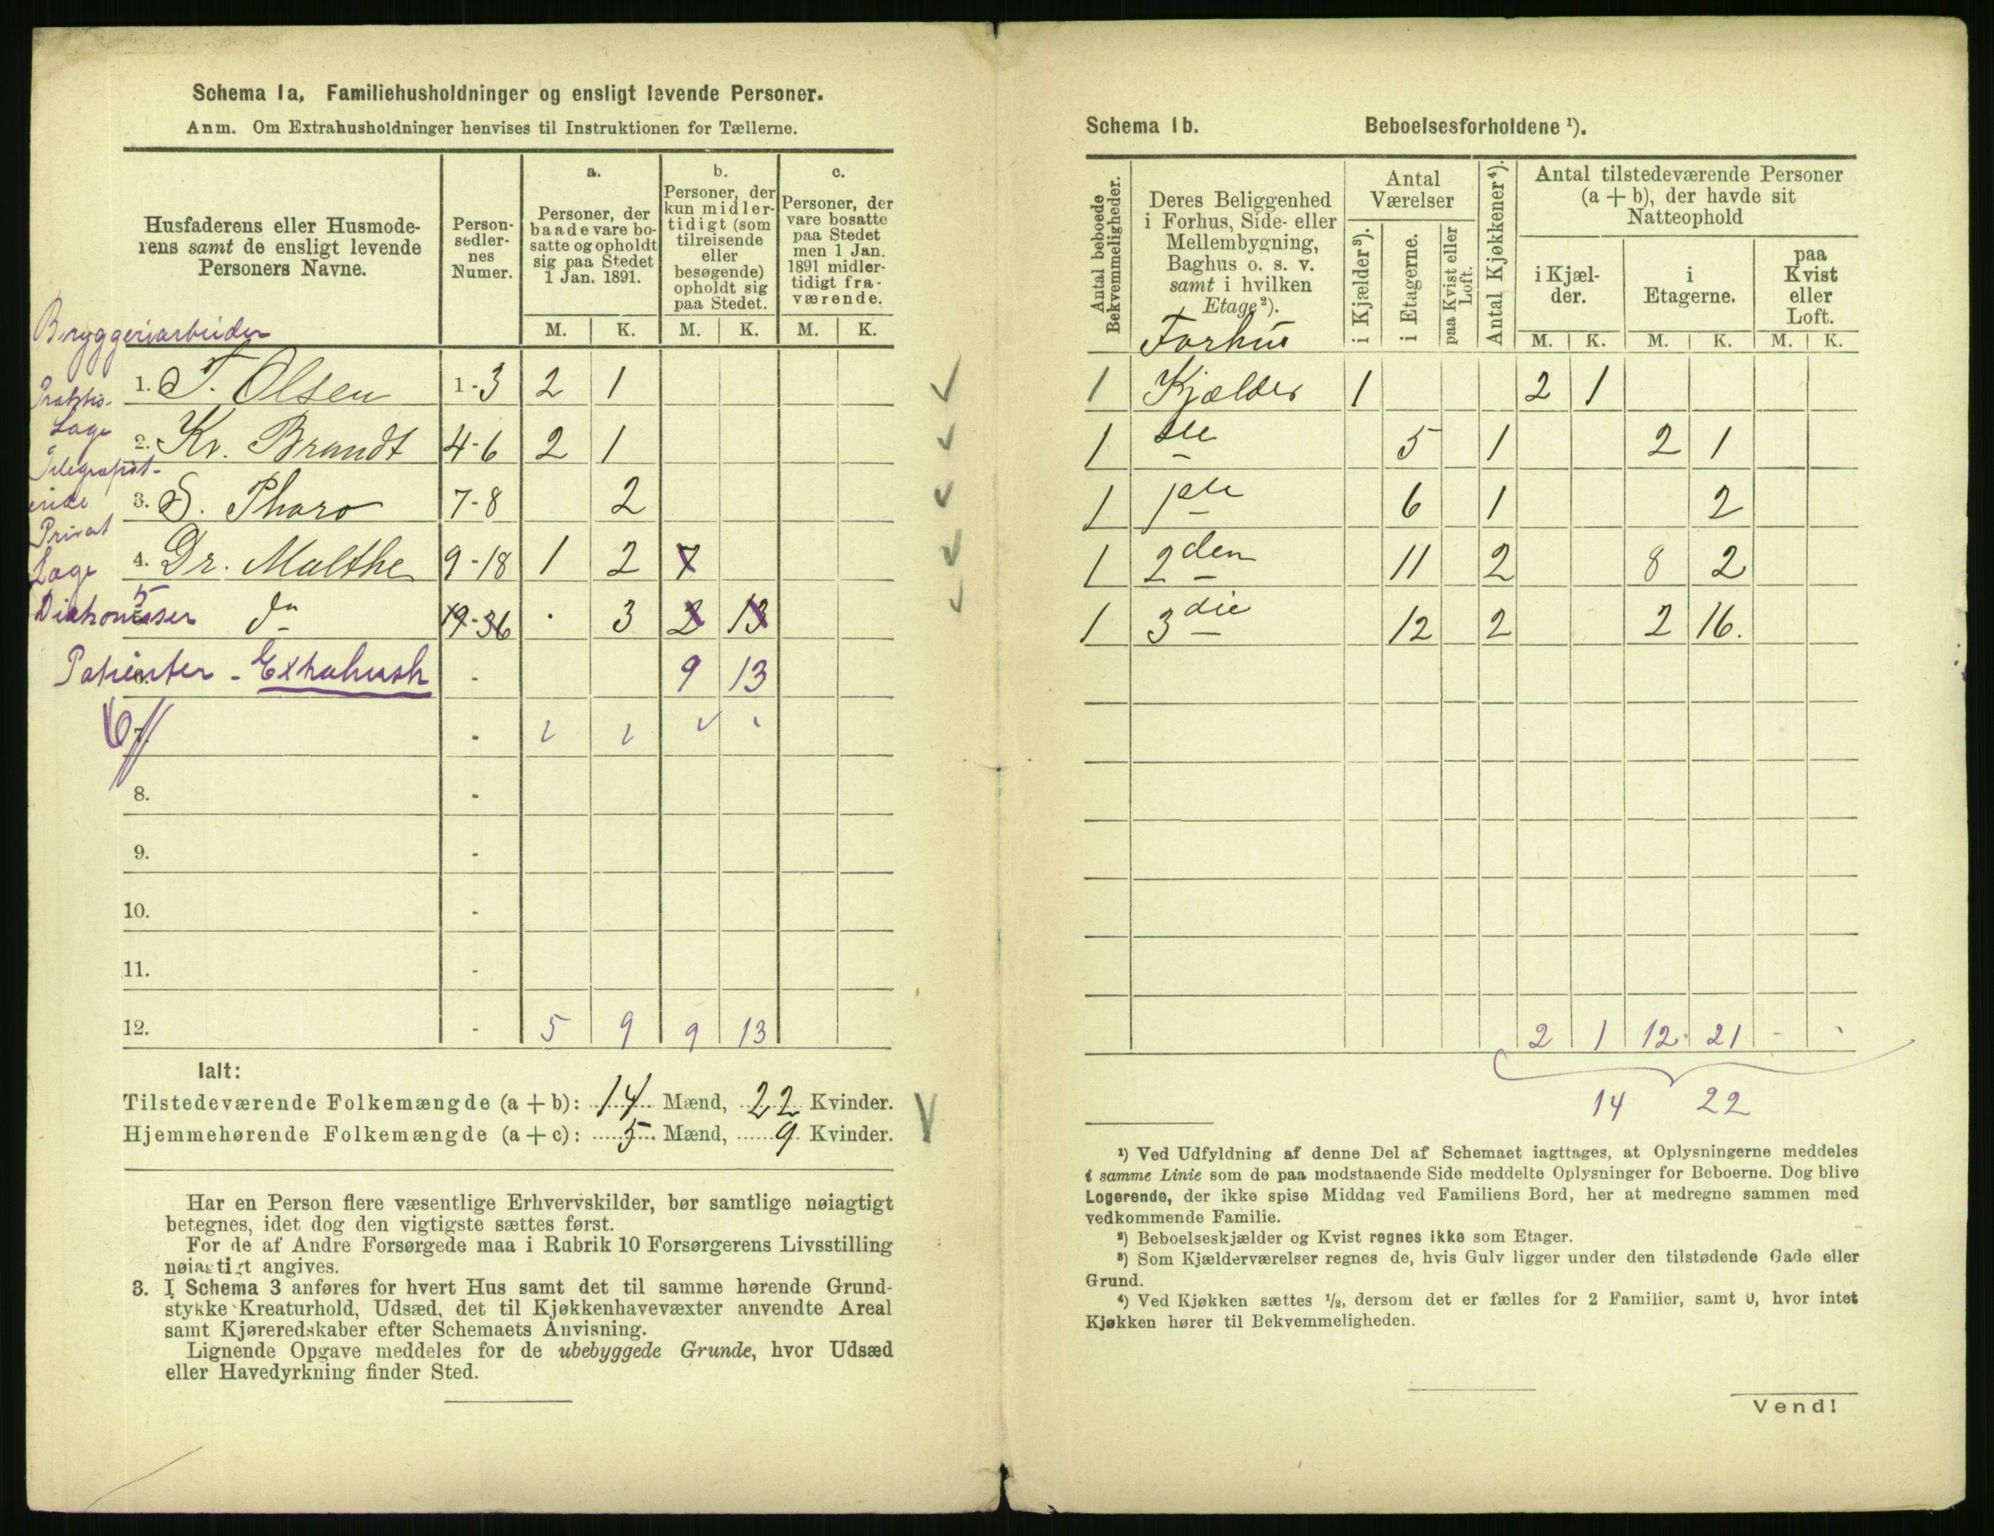 Schema 1a, Familiehusholdninger og ensligt levende Personer.
Anm. Om Extrahusholdninger henvises til Instruktionen for Tællerne.
Husfaderens eller Husmoderens samt de ensligt levende Personers Navne.
Personsedlernes Numer.
a.
Personer, der baade vare bosatte og opholdt sig paa Stedet 1 Jan. 1891.
b.
Personer, der kun midlertidigt (som tilreisende eller besøgende) opholdt sig paa Stedet.
c.
Personer, der vare bosatte paa Stedet men 1 Jan. 1891 midlertidigt fraværende.
M. K. M. K. M. K.
Bryggeriarbeider
1. T. Olsen 1-3 2 1
Praktis. Læge
2. Kr. Brandt 4-6 2 1
Telegrafist-
3. S. Pharo 7-8 2
Privat
4. Dr. Malthe 9-18 1 2 7
Læge
5
Diakonisser do 19-36 · 3 2 13
6. Patienter - Extrahush - 9 13
7. -
8. -
9. -
10. -
11. -
12. - 5 9 9 13
Ialt:
Tilstedeværende Folkemængde (a + b): 14 Mænd, 22 Kvinder.
Hjemmehørende Folkemængde (a + c): 5 Mænd, 9 Kvinder.
Har en Person flere væsentlige Erhvervskilder, bør samtlige nøiagtigt
betegnes, idet dog den vigtigste sættes først.
For de af Andre Forsørgede maa i Rubrik 10 Forsørgerens Livsstilling
nøiagtigt angives.
3. I Schema 3 anføres for hvert Hus samt det til samme hørende Grund-
stykke Kreaturhold, Udsæd, det til Kjøkkenhavevæxter anvendte Areal
samt Kjøreredskaber efter Schemaets Anvisning.
Lignende Opgave meddeles for de ubebyggede Grunde, hvor Udsæd
eller Havedyrkning finder Sted.
Schema 1b. Beboelsesforholdene ¹).
Antal beboede Bekvemmeligheder.
Deres Beliggenhed i Forhus, Side- eller Mellembygning, Baghus o. s. v. samt i hvilken Etage²).
Antal Værelser
i Kjælder³).
i Etagerne.
paa Kvist eller Loft.
Antal Kjøkkener⁴).
Antal tilstedeværende Personer (a + b), der havde sit Natteophold
i Kjælder.
i Etagerne.
paa Kvist eller Loft.
M. K. M. K. M. K.
Forhus
1 Kjælder 1 2 1
1 Ste 5 1 2 1
1 1ste 6 1 2
1 2den 11 2 8 2
1 3die 12 2 2 16.
2 1 12 21 - -
14 22
¹) Ved Udfyldning af denne Del af Schemaet iagttages, at Oplysningerne meddeles
i samme Linie som de paa modstaaende Side meddelte Oplysninger for Beboerne. Dog blive
Logerende, der ikke spise Middag ved Familiens Bord, her at medregne sammen med
vedkommende Familie.
²) Beboelseskjælder og Kvist regnes ikke som Etager.
³) Som Kjælderværelser regnes de, hvis Gulv ligger under den tilstødende Gade eller
Grund.
⁴) Ved Kjøkken sættes ½, dersom det er fælles for 2 Familier, samt 0, hvor intet
Kjøkken hører til Bekvemmeligheden.
Vend!